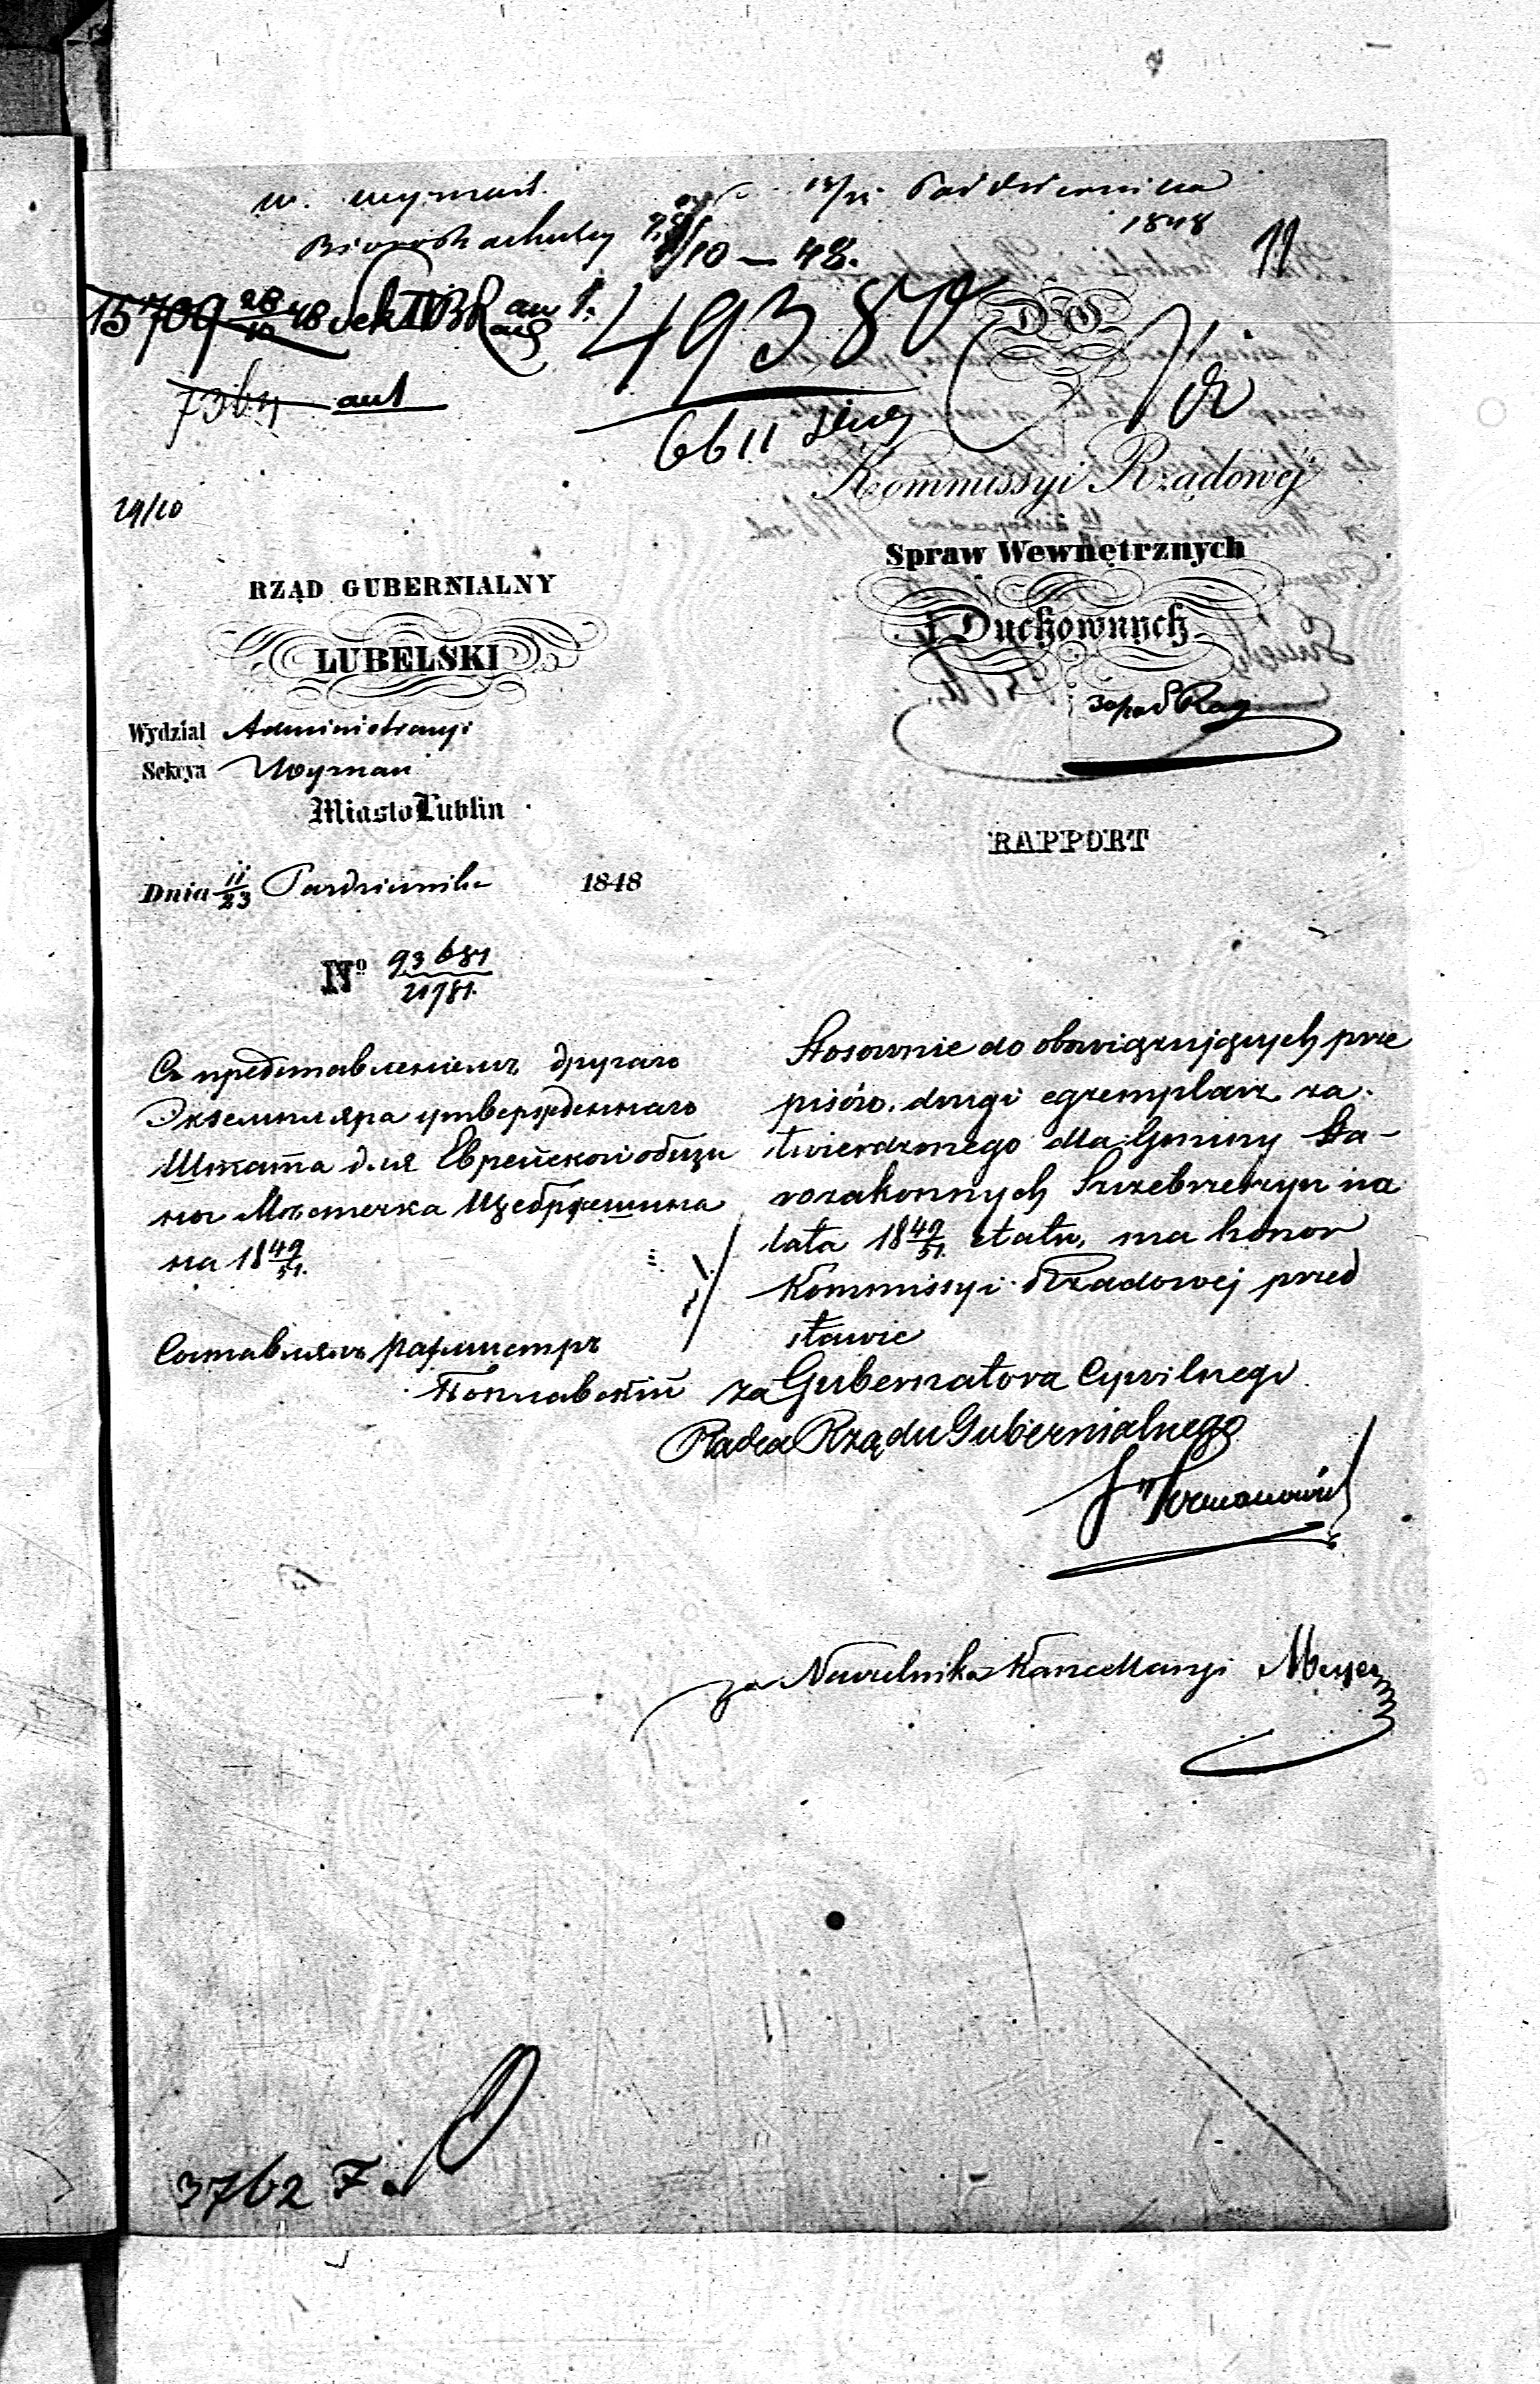 w. wyznań
15/27 Października
1848
28/10 – 48.
11
15709 28/10 48 Sek IV
49380
7364
6611
29/10
DO
Kommissyi Rządowej
Spraw Wewnętrznych
i Duchownych
RZĄD GUBERNIALNY
LUBELSKI
Wydział Administracyi
Sekcya Wyznań
Miasto Lublin
RAPPORT
Dnia 11/23 Października 1848
Nº 93681/21781.
Съ представленіемъ другаго
Экземпляра утвержденнаго
Штата для Еврейской общи
ны Мѣстечка Щебржешина
на 18 49/51.
Составлялъ
Stosownie do obowiązujących prze
pisów, drugi egzemplarz za-
twierdzonego dla Gminy Sta-
rozakonnych Szczebrzeszyn na
lata 18 49/51. etatu, ma honor
Kommissyi Rządowej przed
stawić
za Gubernatora Cywilnego
Radca Rządu Gubernialnego
za Naczelnika Kancellaryi Meyer
3762